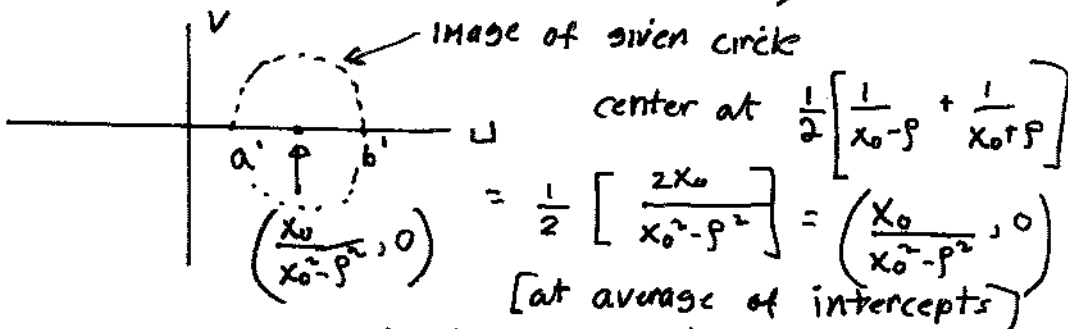 V
image of given circle
center at 1/2 [ 1/(x₀-ρ) + 1/(x₀+ρ) ]
a' b' u
= 1/2 [ 2x₀/(x₀²-ρ²) ] = ( x₀/(x₀²-ρ²), 0 )
( x₀/(x₀²-ρ²), 0 )
[at average of intercepts]